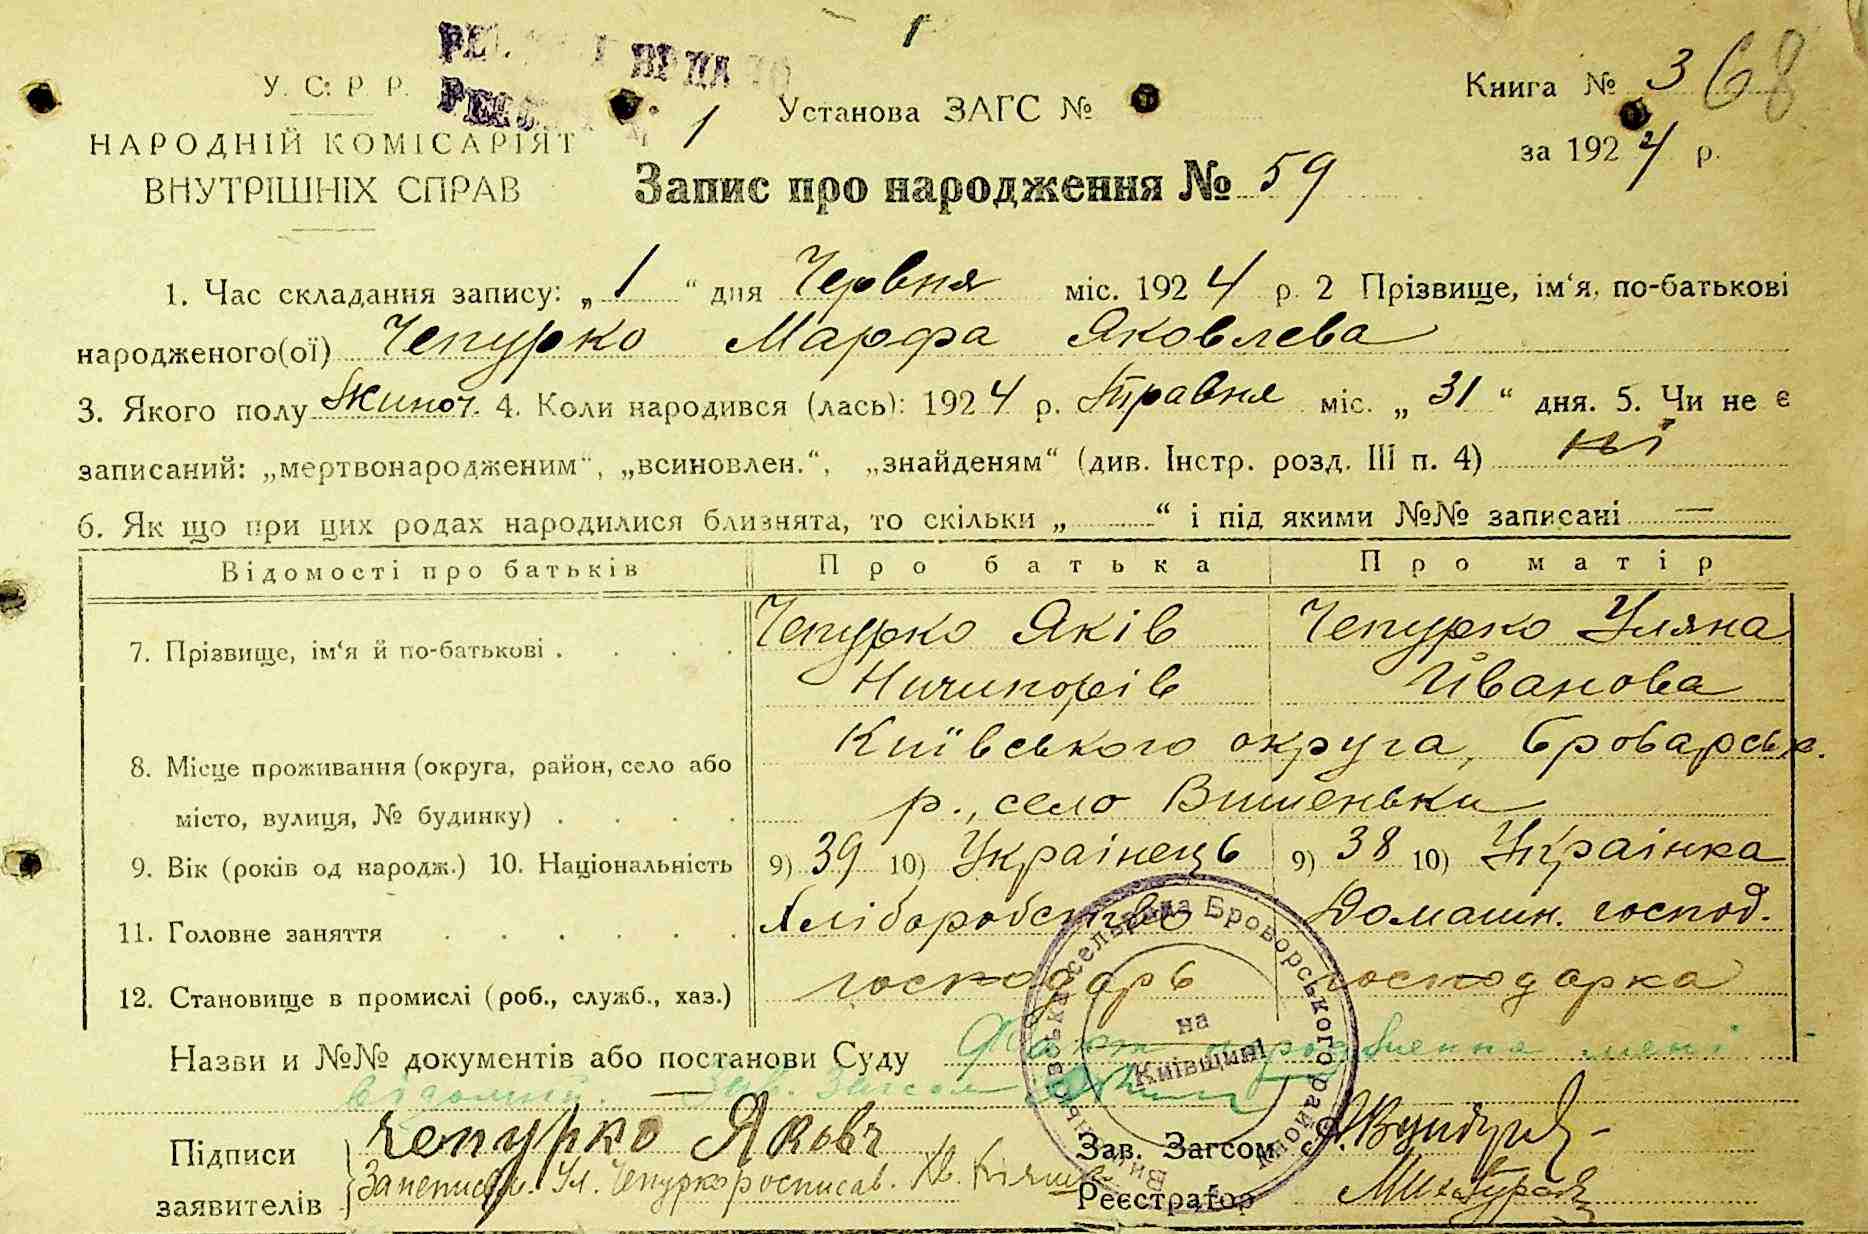 1
У. С. Р. Р.
Установа ЗАГС № 1
Книга № 3
68
НАРОДНІЙ КОМІСАРІЯТ
за 1924 р.
ВНУТРІШНІХ СПРАВ
Запис про народження № 59
1. Час складання запису: „1“ дня Червня міс. 1924 р. 2 Прізвище, ім‘я, по-батькові
народженого(ої) Чепурко Марфа Яковлева
3. Якого полу жиноч. 4. Коли народився (лась): 1924 р. Травня міс. „31“ дня. 5. Чи не є
записаний: „мертвонародженим“, „всиновлен.“, „знайденям“ (див. Інстр. розд. III п. 4) ні
6. Як що при цих родах народилися близнята, то скільки „ “ і під якими №№ записані —
Відомості про батьків Про батька Про матір
7. Прізвище, ім‘я й по-батькові Чепурко Яків Чепурко Уляна
Ничипорів Иванова
8. Місце проживання (округа, район, село або Київського округа, Броварськ.
місто, вулиця, № будинку) р., село Вишеньки
9. Вік (років од народж.) 10. Національність 9) 39 10) Українець 9) 38 10) Українка
11. Головне заняття Хліборобство Домашн. господ.
12. Становище в промислі (роб., служб., хаз.) господарь господарка
Назви и №№ документів або постанови Суду Факт народження мені
відомий. Зав. Загсом
Підписи Чепурко Яковъ Зав. Загсом
заявителів За неписьм. Ул. Чепурко росписав. Реєстратор
сельрада Броворського району на Київщині